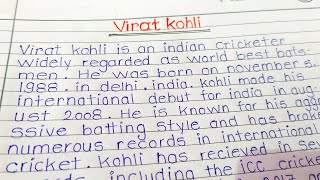 Virat Kohli
Virat Kohli is an indian cricketer
widely regarded as world best bats-
men. He was born on november 5.
1988. in delhi. india. kohli made his
international debut for india in aug-
ust 2008. He is known for his aggre
ssive batting style and has broke
numerous records in international
cricket. Kohli has recieved in sev
including the ICC cricke